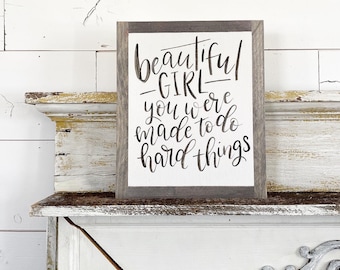 beautiful
GIRL
you were
made to do
hard things